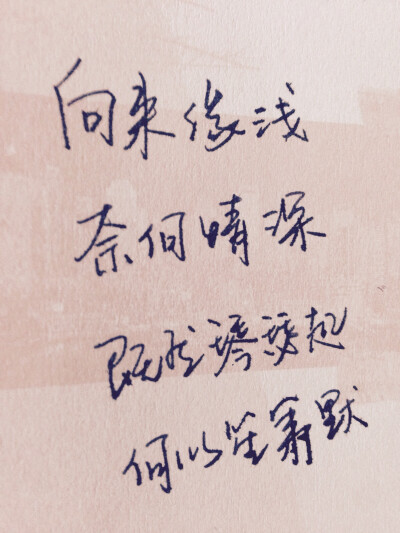 向来缘浅
奈何晴深
既然琴瑟起
何以笙箫默